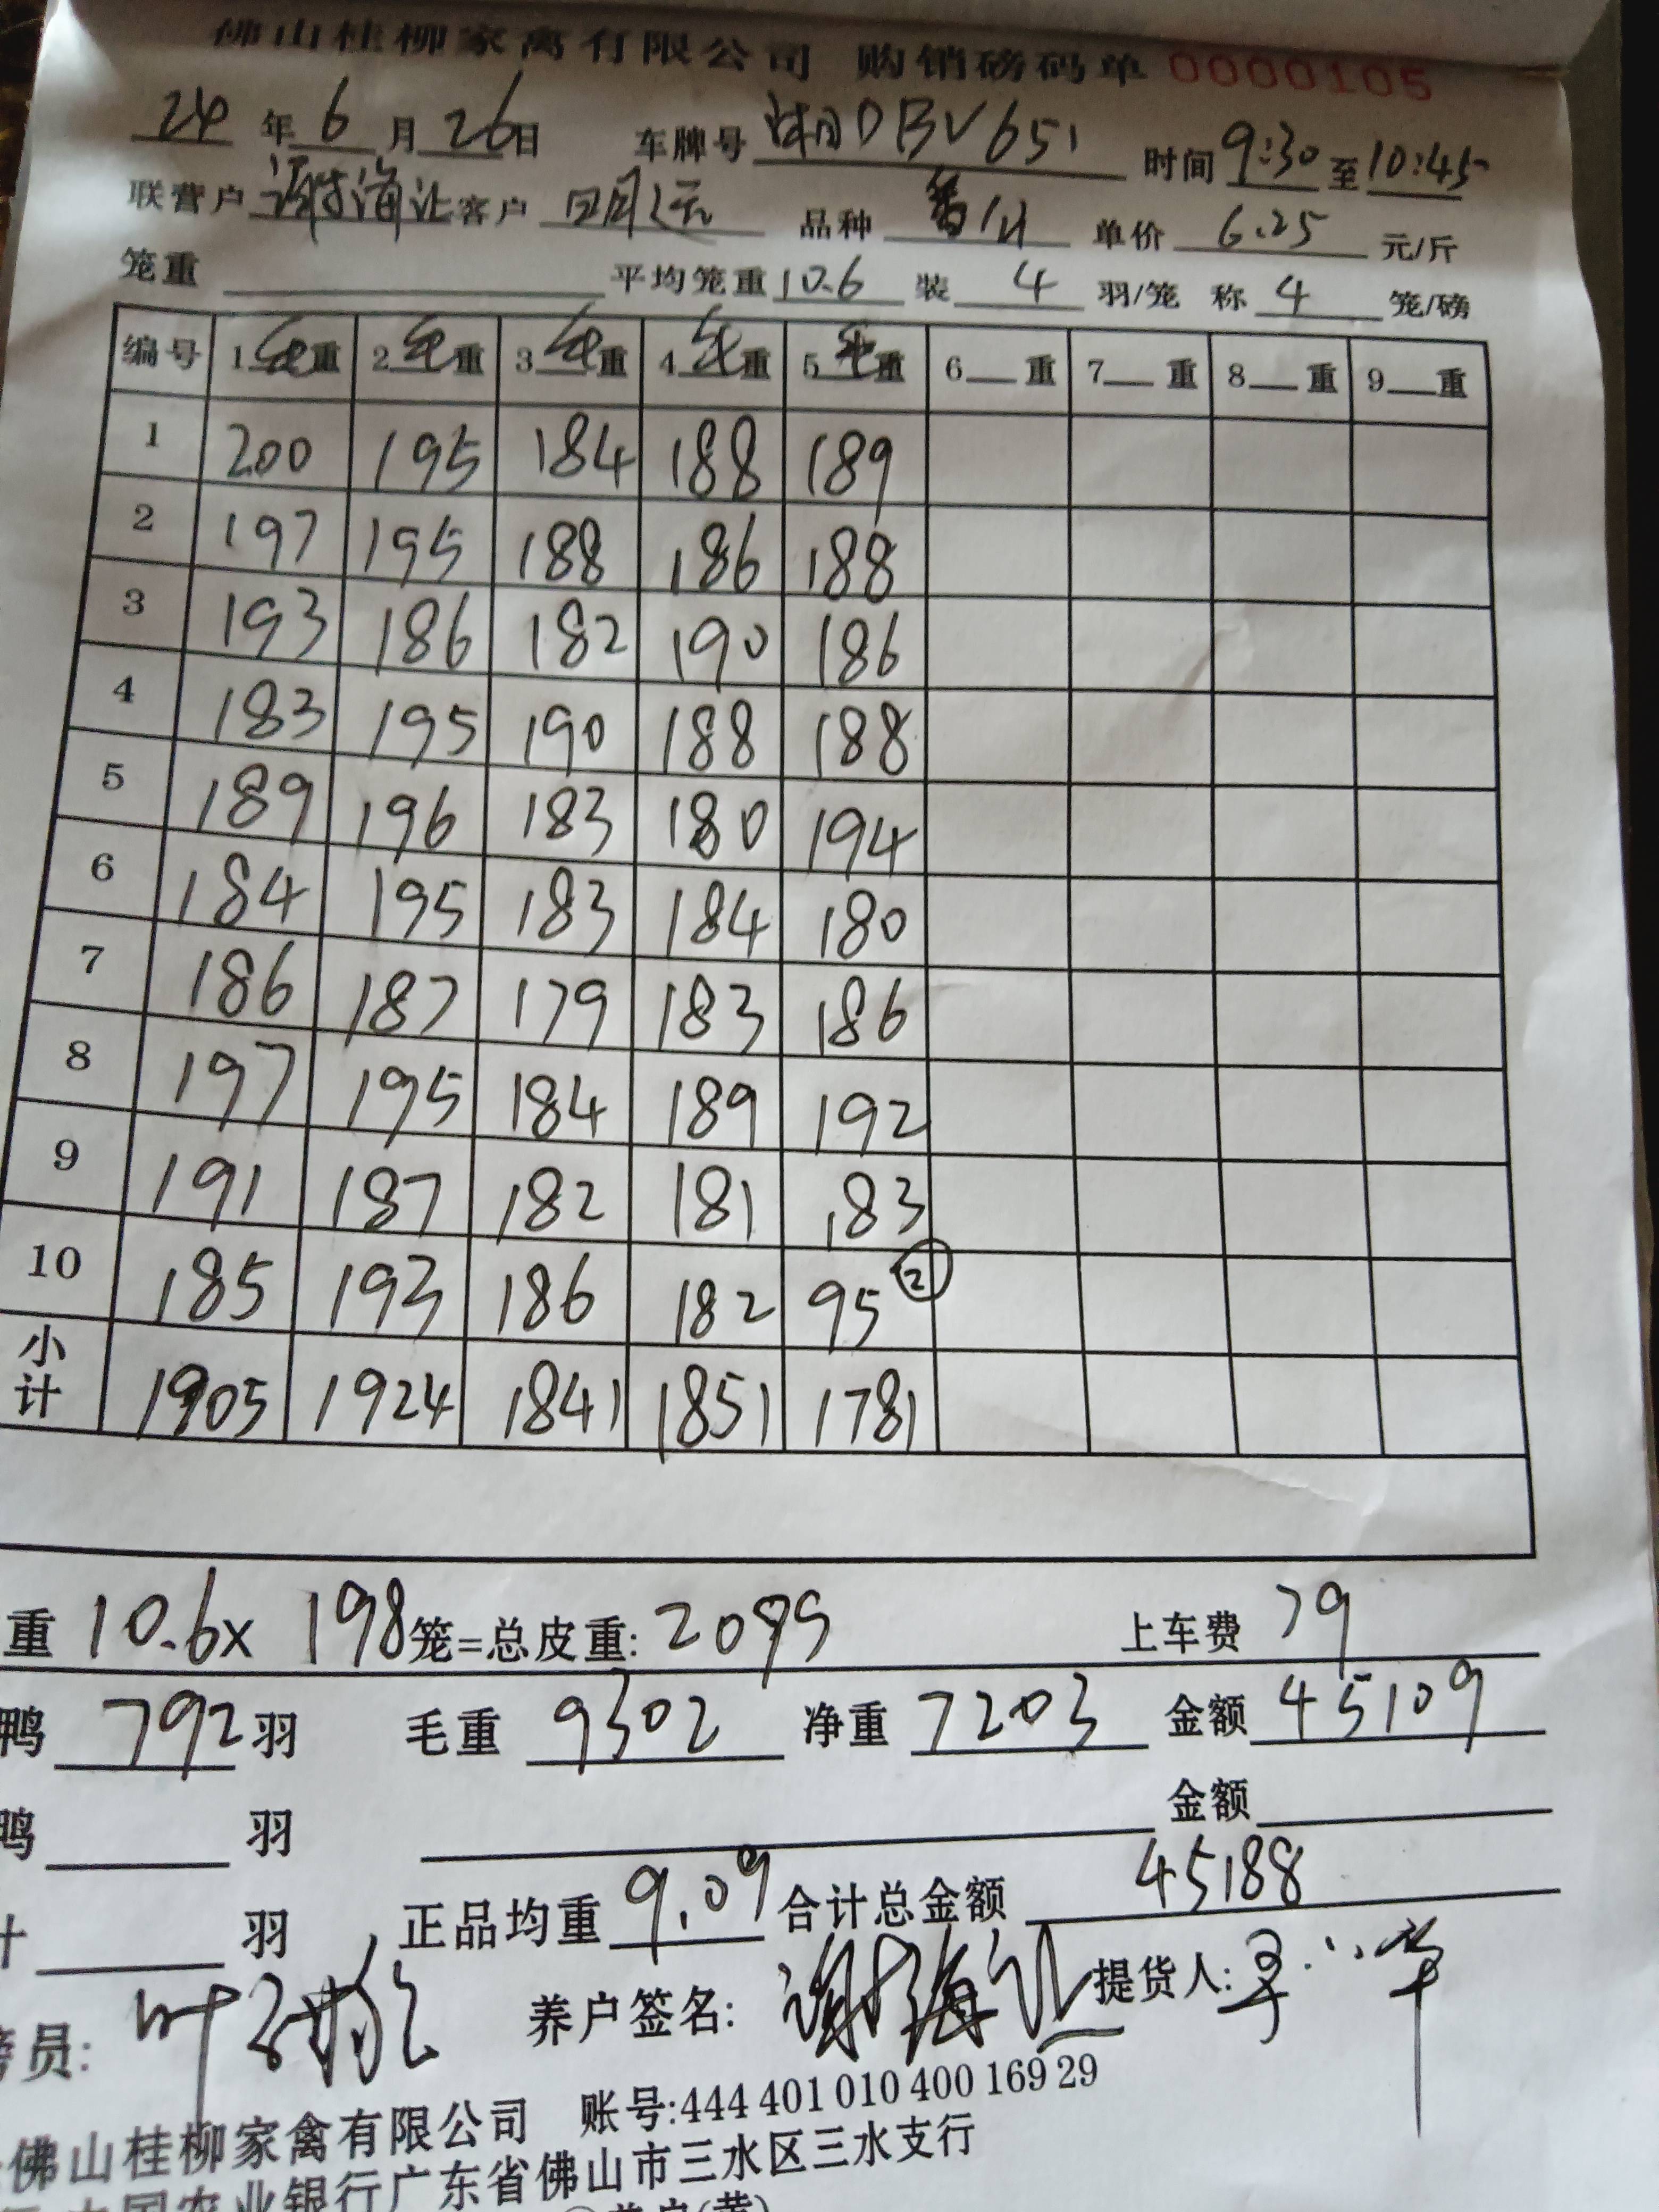 佛山桂柳家禽有限公司 购销磅码单 0000105
24 年 6 月 26 日 车牌号 湘DBV651 时间 9:30 至 10:45
联营户 谢海让 客户 品种 番 单价 6.25 元/斤
笼重 平均笼重 10.6 装 4 羽/笼 称 4 笼/磅
编号 1 毛重 2 毛重 3 毛重 4 毛重 5 毛重 6 重 7 重 8 重 9 重
1 200 195 184 188 189
2 197 195 188 186 188
3 193 186 182 190 186
4 183 195 190 188 188
5 189 196 183 180 194
6 184 195 183 184 180
7 186 187 179 183 186
8 197 195 184 189 192
9 191 187 182 181 183
10 185 193 186 182 95 ②
小计 1905 1924 1841 1851 1781
重 10.6x 198 笼=总皮重: 2099 上车费 79
鸭 792 羽 毛重 9302 净重 7203 金额 45109
鸭 羽 金额
计 羽 正品均重 9.09 合计总金额 45188
磅员: 叶 养户签名: 谢海让 提货人:
佛山桂柳家禽有限公司 账号:444 401 010 400 169 29
中国农业银行广东省佛山市三水区三水支行